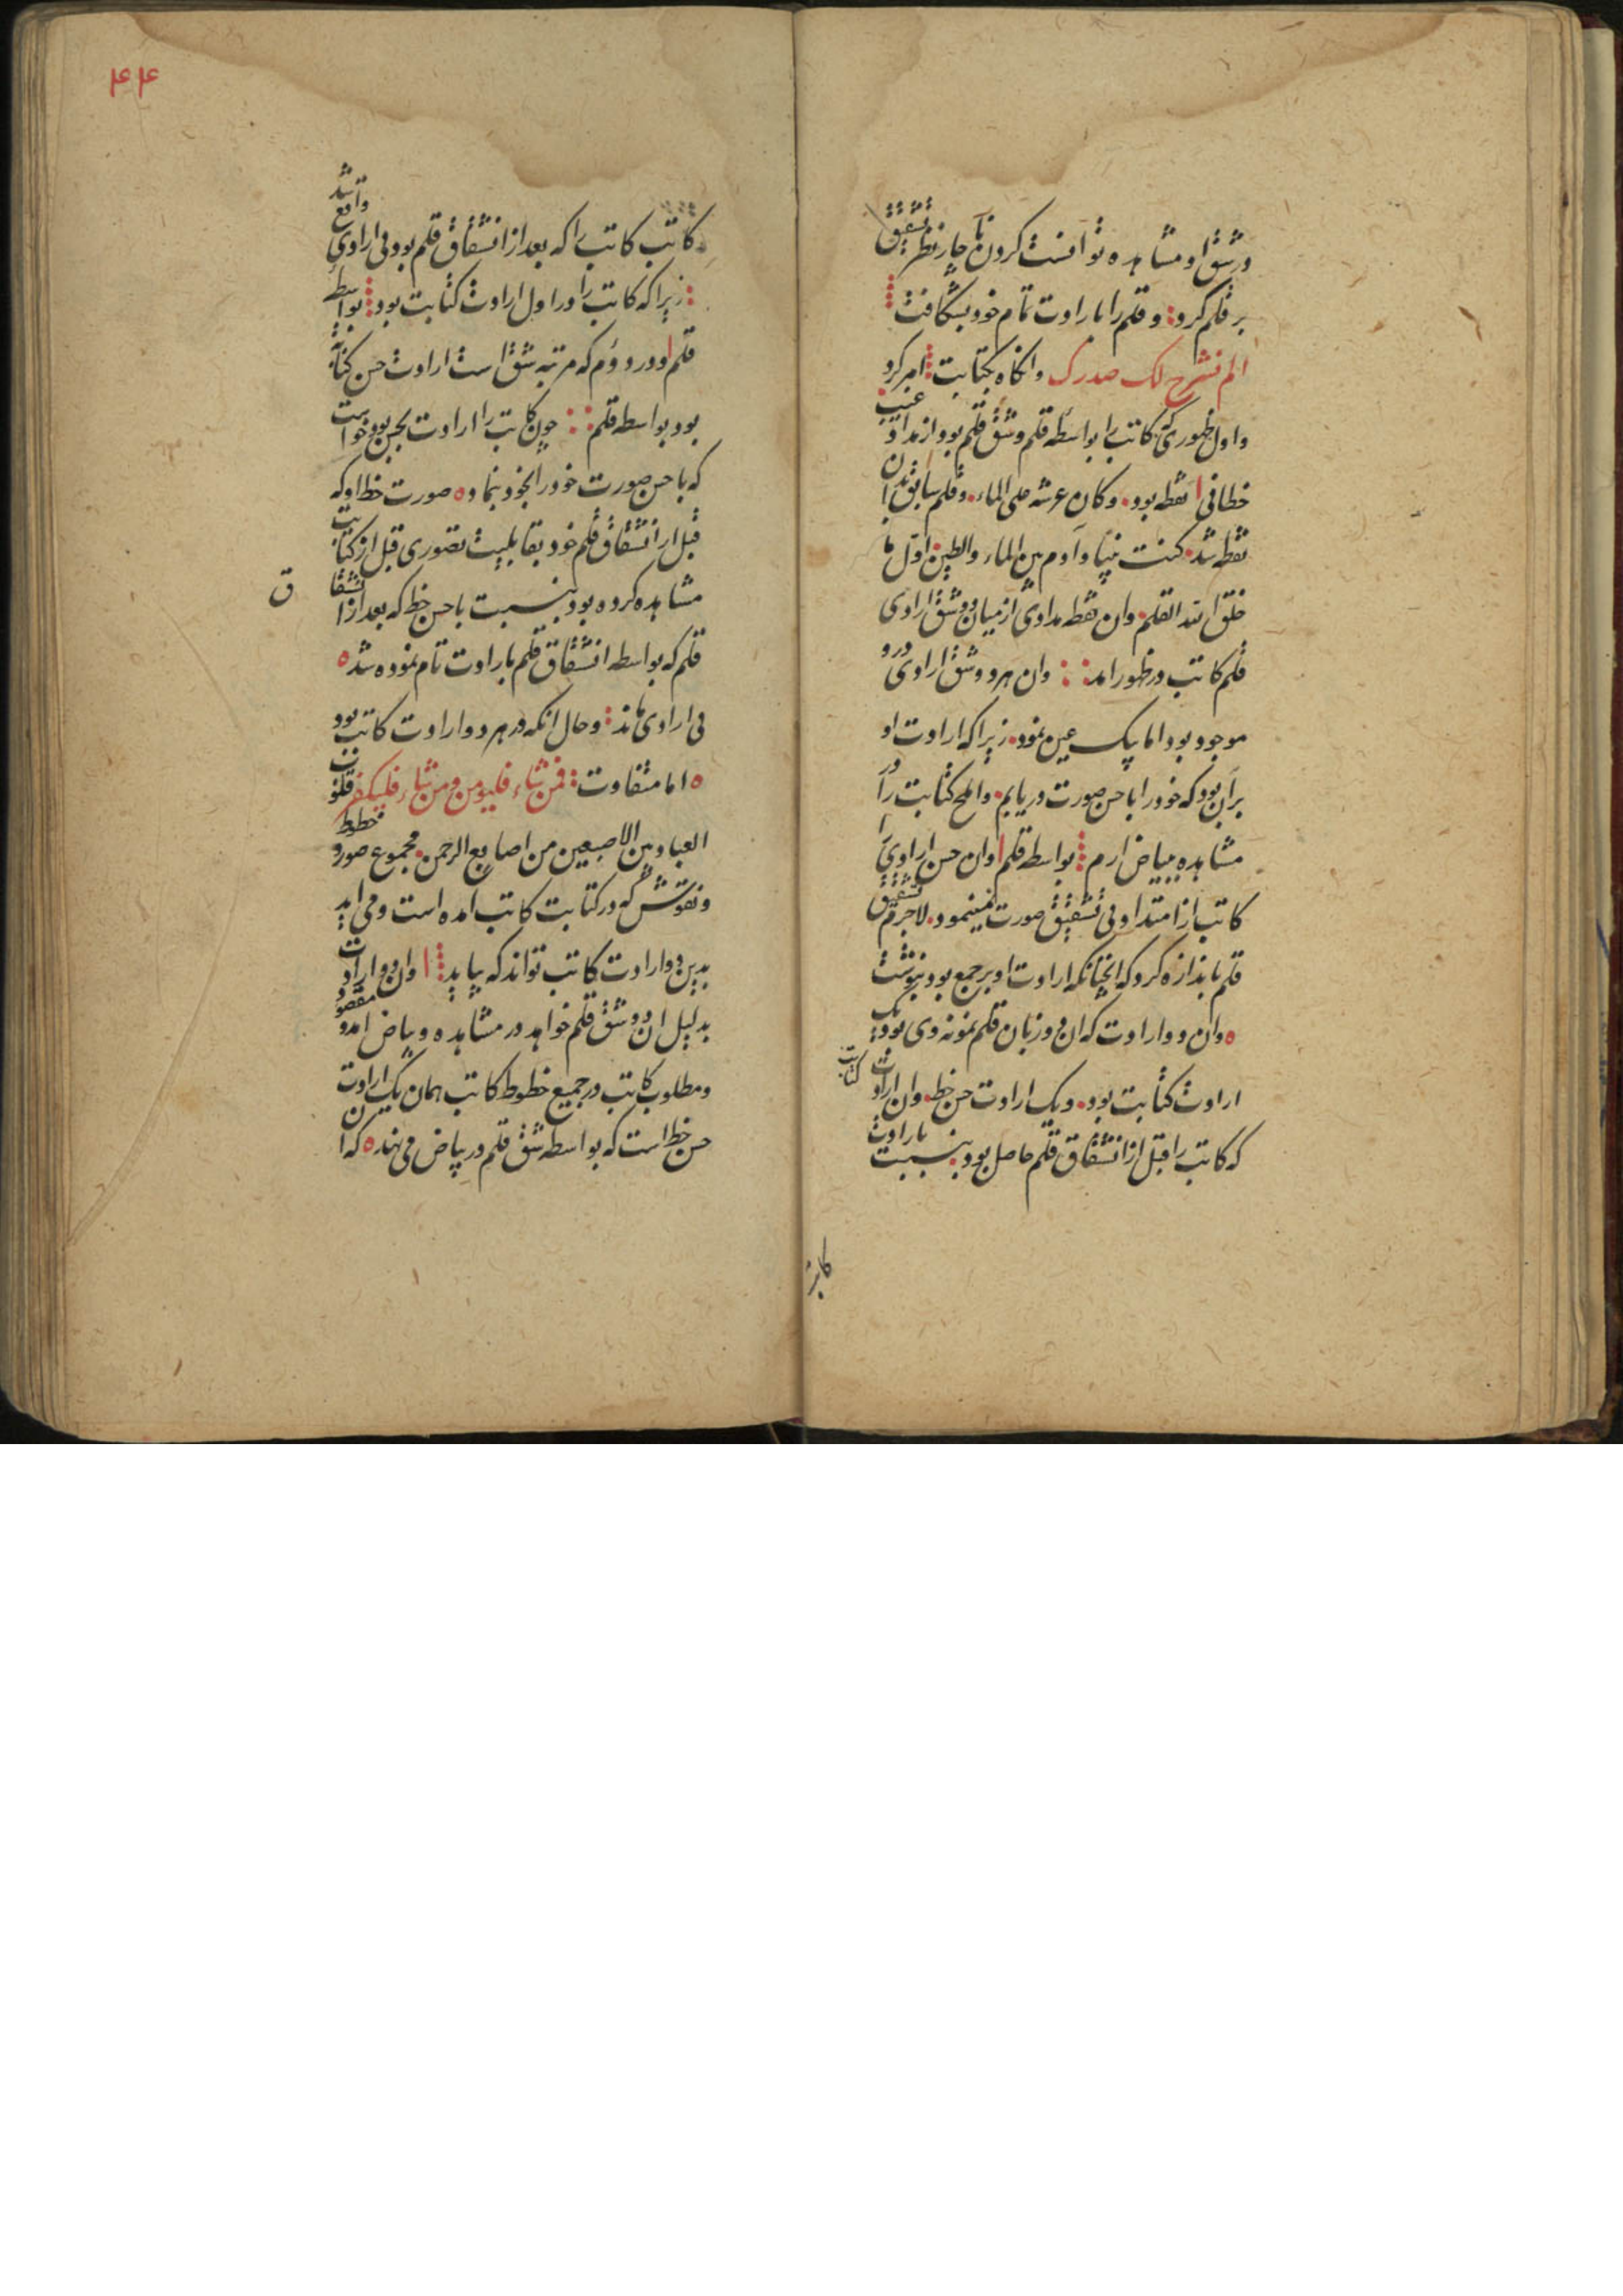 در شق او مشاهده توانست کردن ناچار نظر تشقیق
بر قلم کرد و قلم را باارادت تمام خود بشکافت
الم نشرح لک صدرک وانکاه بکتابت امر کرد
و اول ظهوری که کاتب را بواسطه قلم و شق قلم بود از مداد غیب
خطافی نقطه بود وکان عرشه علی الماء وقلم سابق بدان
نقطه شد کنت نبیا وآدم بین الماء والطین اول ما
خلق الله القلم وان نقطه مدادی از میان دو شق ارادی
قلم کاتب در ظهور امد وان هر دو شق ارادی درو
موجود بود اما یک عین نمود زیرا که ارادت او
بران بود که خود را با حسن صورت دریابم والمح کتابت را در
مشاهده ببیاض ارم بواسطه قلم وان حسن ارادی را
کاتب از امتداد بی تشقیق صورت نمینمود لاجرم تشقیق
قلم باندازه کرد که انچنانکه ارادت او بر جمع بود بنوشت
وان دو ارادت که ان دو زبان قلم نمونه وی بود یک
ارادت کتابت بود ویک ارادت حسن خط وان ارادت کتابت
که کاتب را قبل از انشقاق قلم حاصل بود بنسبت باارادت
۴۴
کاتب کاتب را که بعد از انشقاق قلم بود بی ارادی واقع شد
زیرا که کاتب را در اول ارادت کتابت بود بواسطه
قلم ودر دوم که مرتبه شق است ارادت حسن کتابت
بود بواسطه قلم چون کاتب را ارادت بحسن بود خواست
که با حسن صورت خود را بخود بنماد صورت خط او که
قبل از انشقاق قلم خود بقابلیت تصوری قبل از کتابت
مشاهده کرده بود بنسبت باحسن خط که بعد از انشقاق
قلم که بواسطه انشقاق قلم باارادت تام نموده شد
بی ارادی ماند وحال انکه در هر دو ارادت کاتب بود
اما متفاوت فمن شاء فلیؤمن ومن شاء فلیکفر قلوب
العباد بین الاصبعین من اصابع الرحمن مجموع صور و خطوط
ونقوش که در کتابت کاتب امده است ومی اید
بدین دو ارادت کاتب تواند که بیاید وان دو ارادت
بدلیل ان دو شق قلم خواهد در مشاهده وبیاض امد و مقصود
ومطلوب کاتب در جمیع خطوط کاتب همان یک ارادت
حسن خط است که بواسطه شق قلم در بیاض می نهد که ان